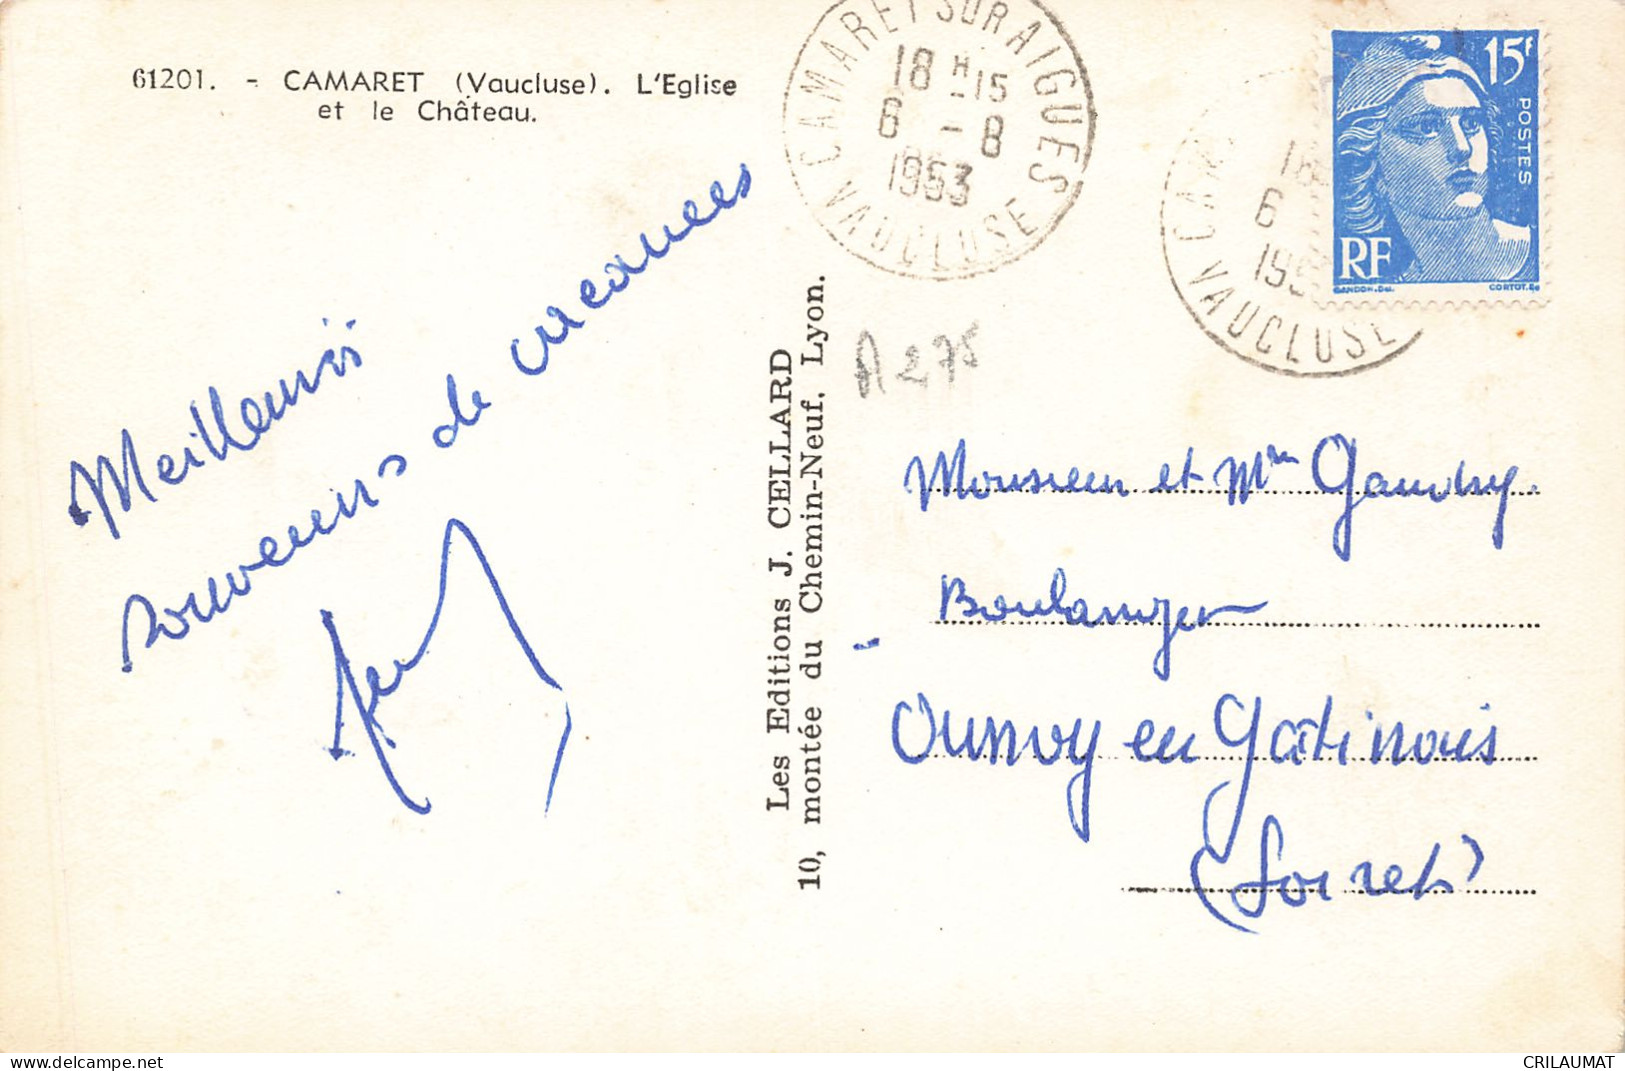 61201. - CAMARET (Vaucluse). L'Eglise
et le Château.
CAMARET SUR AIGUES
18 H 15
6 - 8
1953
VAUCLUSE
CAM
18
6
195
VAUCLUSE
15F
POSTES
RF
GANDON.DEL.
CORTOT.SC
A 275
Meilleurs
souvenirs de vacances
Les Editions J. CELLARD
10, montée du Chemin-Neuf, Lyon.
Monsieur et Mme Gaudry.
Boulanger
Oussoy en Gatinais
(Loiret)
www.delcampe.net
CRILAUMAT